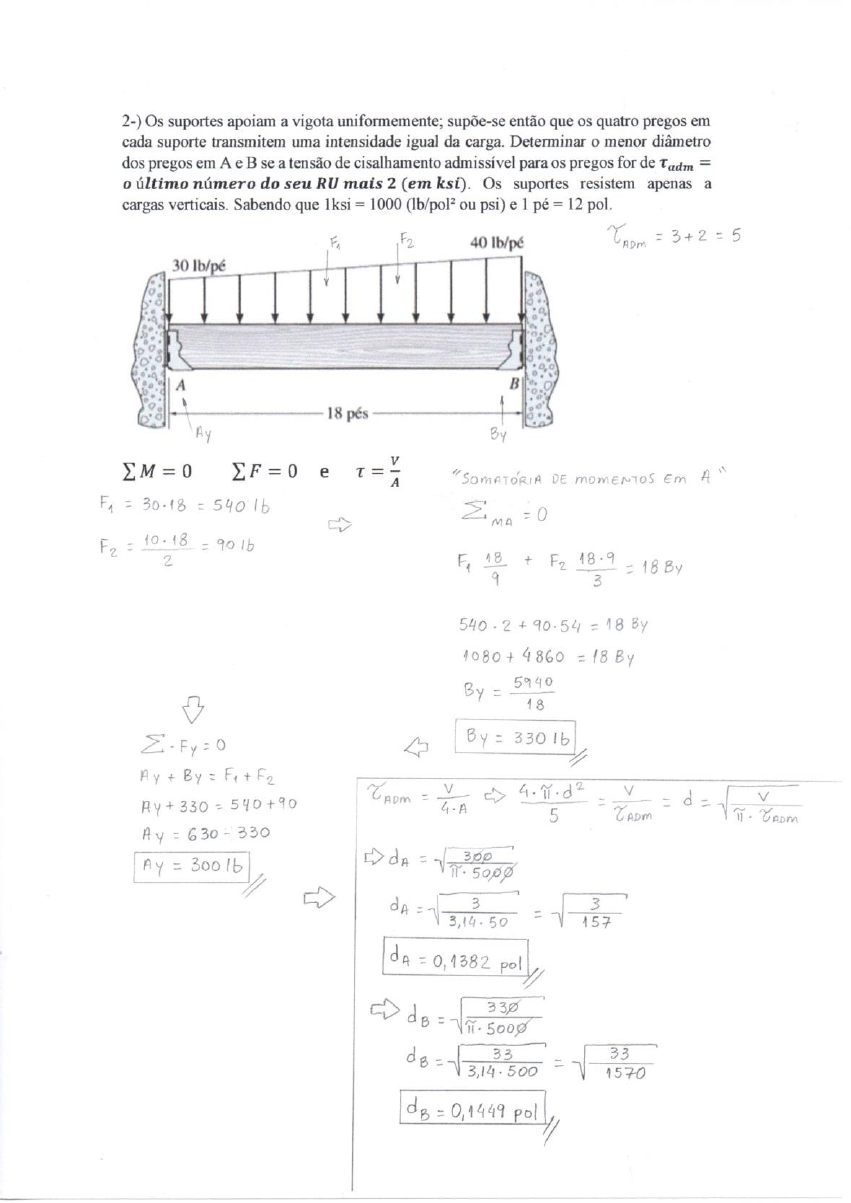 2-) Os suportes apoiam a vigota uniformemente; supõe-se então que os quatro pregos em
cada suporte transmitem uma intensidade igual da carga. Determinar o menor diâmetro
dos pregos em A e B se a tensão de cisalhamento admissível para os pregos for de τ_adm =
o último número do seu RU mais 2 (em ksi). Os suportes resistem apenas a
cargas verticais. Sabendo que 1ksi = 1000 (lb/pol² ou psi) e 1 pé = 12 pol.
τ_ADM = 3+2 = 5
F₁ F₂ 40 lb/pé
30 lb/pé
A B
18 pés
Ay By
∑M = 0 ∑F = 0 e τ = V/A
"SOMATÓRIA DE MOMENTOS EM A"
F₁ = 30·18 = 540 lb
⇨
F₂ = 10·18/2 = 90 lb
∑MA = 0
F₁ 18/9 + F₂ 18·9/3 = 18 By
540·2 + 90·54 = 18 By
1080 + 4860 = 18 By
By = 5940/18
By = 330 lb
⇦
⇩
∑·Fy = 0
Ay + By = F₁ + F₂
Ay + 330 = 540 + 90
Ay = 630 - 330
Ay = 300 lb
⇨
τ_ADM = V/4·A ⇨ 4·π·d²/5 = V/τ_ADM = d = √(V/π·τ_ADM)
⇨ dA = √(300/π·5000)
dA = √(3/3,14·50) = √(3/157)
dA = 0,1382 pol
⇨ dB = √(330/π·5000)
dB = √(33/3,14·500) = √(33/1570)
dB = 0,1449 pol